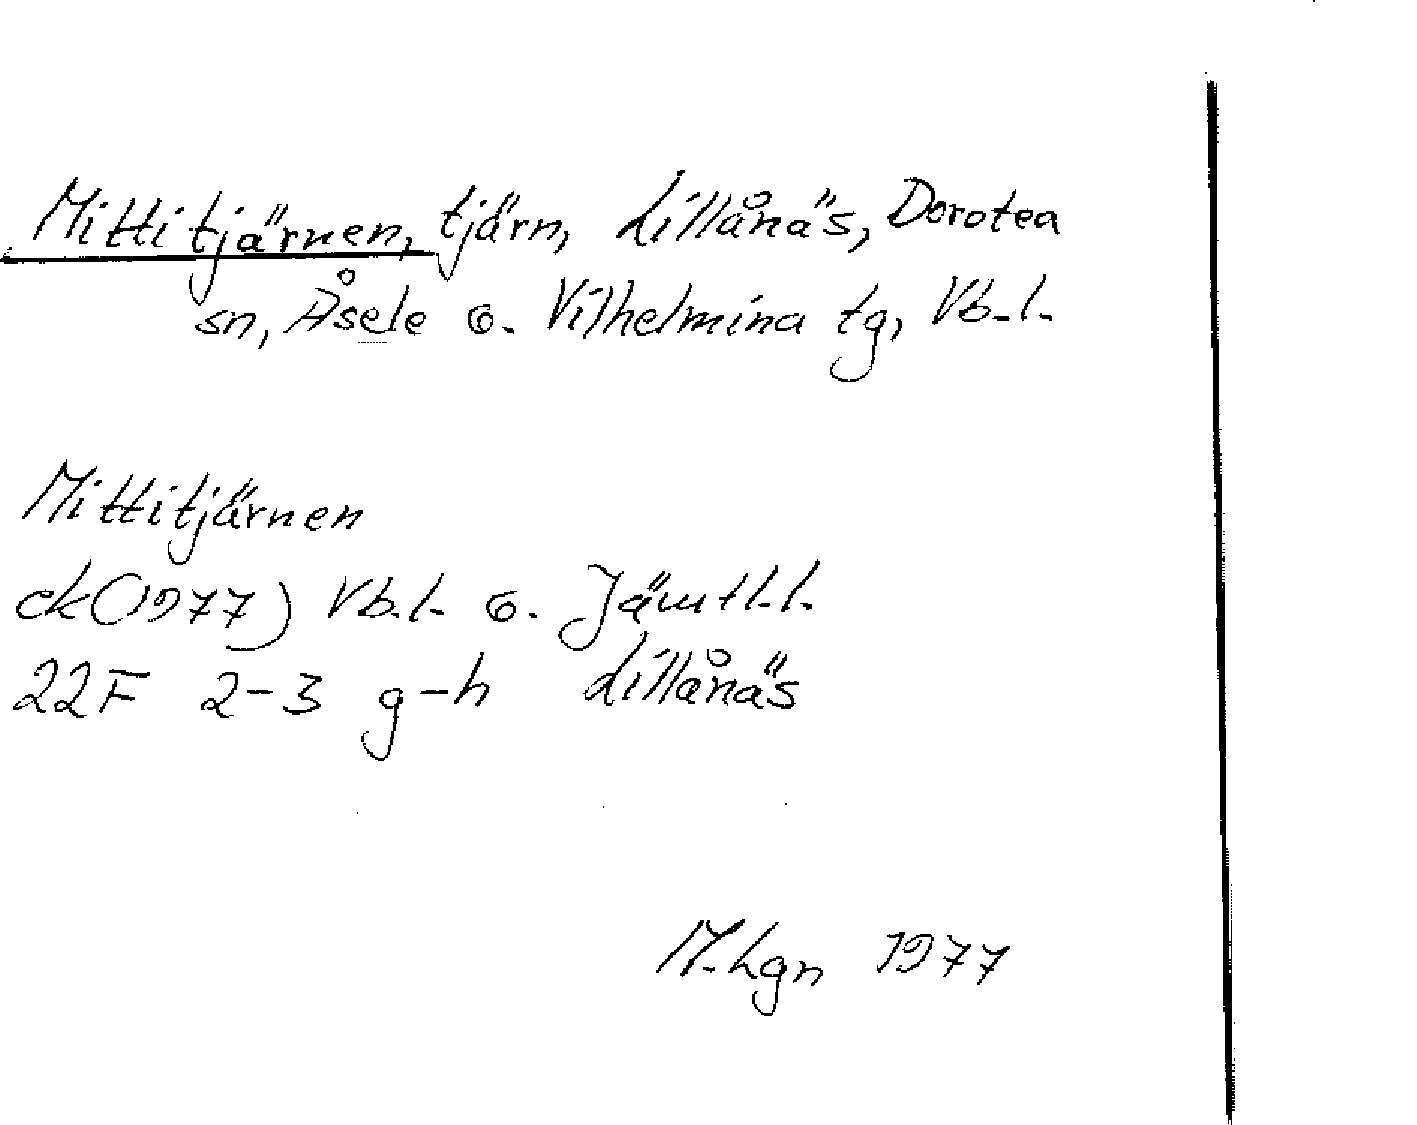 Mittitjärnen, tjärn, Lillånäs, Dorotea
sn, Åsele o. Vilhelmina tg, Vb.l.
Mittitjärnen
ek (1977) Vb.l. o. Jämtl.l.
22F 2-3 g-h Lillånäs
M.Lgn 1977